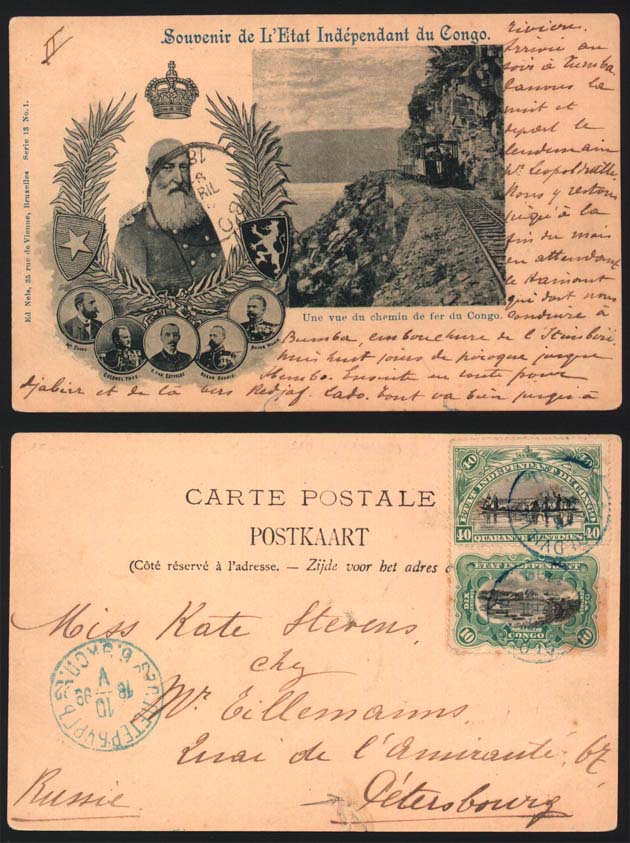 II
Souvenir de L'Etat Indépendant du Congo.
Ed. Nels, 35 rue de Vienne, Bruxelles Serie 13 No. 1.
18
AVRIL
Mr. FUCHS
COLONEL THYS
BARON DHANIS
BARON WAHIS
Une vue du chemin de fer du Congo.
rivière.
Arrivée au
soir à Tumba
Canons la
nuit et
départ le
lendemain
Pr. Leopoldville
Nous y restons
jusqu'à la
fin du mois
en attendant
le
qui doit nous
conduire à
Bumba, embouchure de l'Itimbiri,
puis huit jours de pirogue jusque
Ibembo. Ensuite en route pour
Djabirr et de là vers Redjaf. Lado. tout va bien jusqu'à
CARTE POSTALE
POSTKAART
(Côté réservé à l'adresse. — Zijde voor het adres
ETAT INDÉPENDANT DU CONGO
40 40
40 QUARANTE CENTIMES 40
ETAT INDÉPENDANT
DIX
10 CONGO 10
Miss Kate Stevens,
chez
Mr Tillemanns,
Quai de l'Amirauté, 67
Pétersbourg
Russie
С.ПЕТЕРБУРГЪ
10
V
18 99